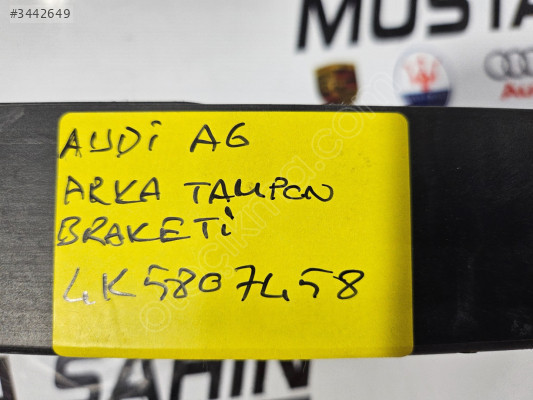 #3442649
MUSTA
Aud
AUDİ A6
ARKA TAMPON
BRAKETİ
4K5807458
ŞAHİN